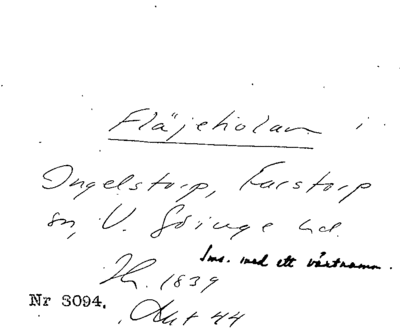 Fläjeholan i
Ingelstorp, Farstorp
sn, V. Göinge hd.
Sms. med ett växtnamn.
Hr. 1839
Nr 3094. Akt 44